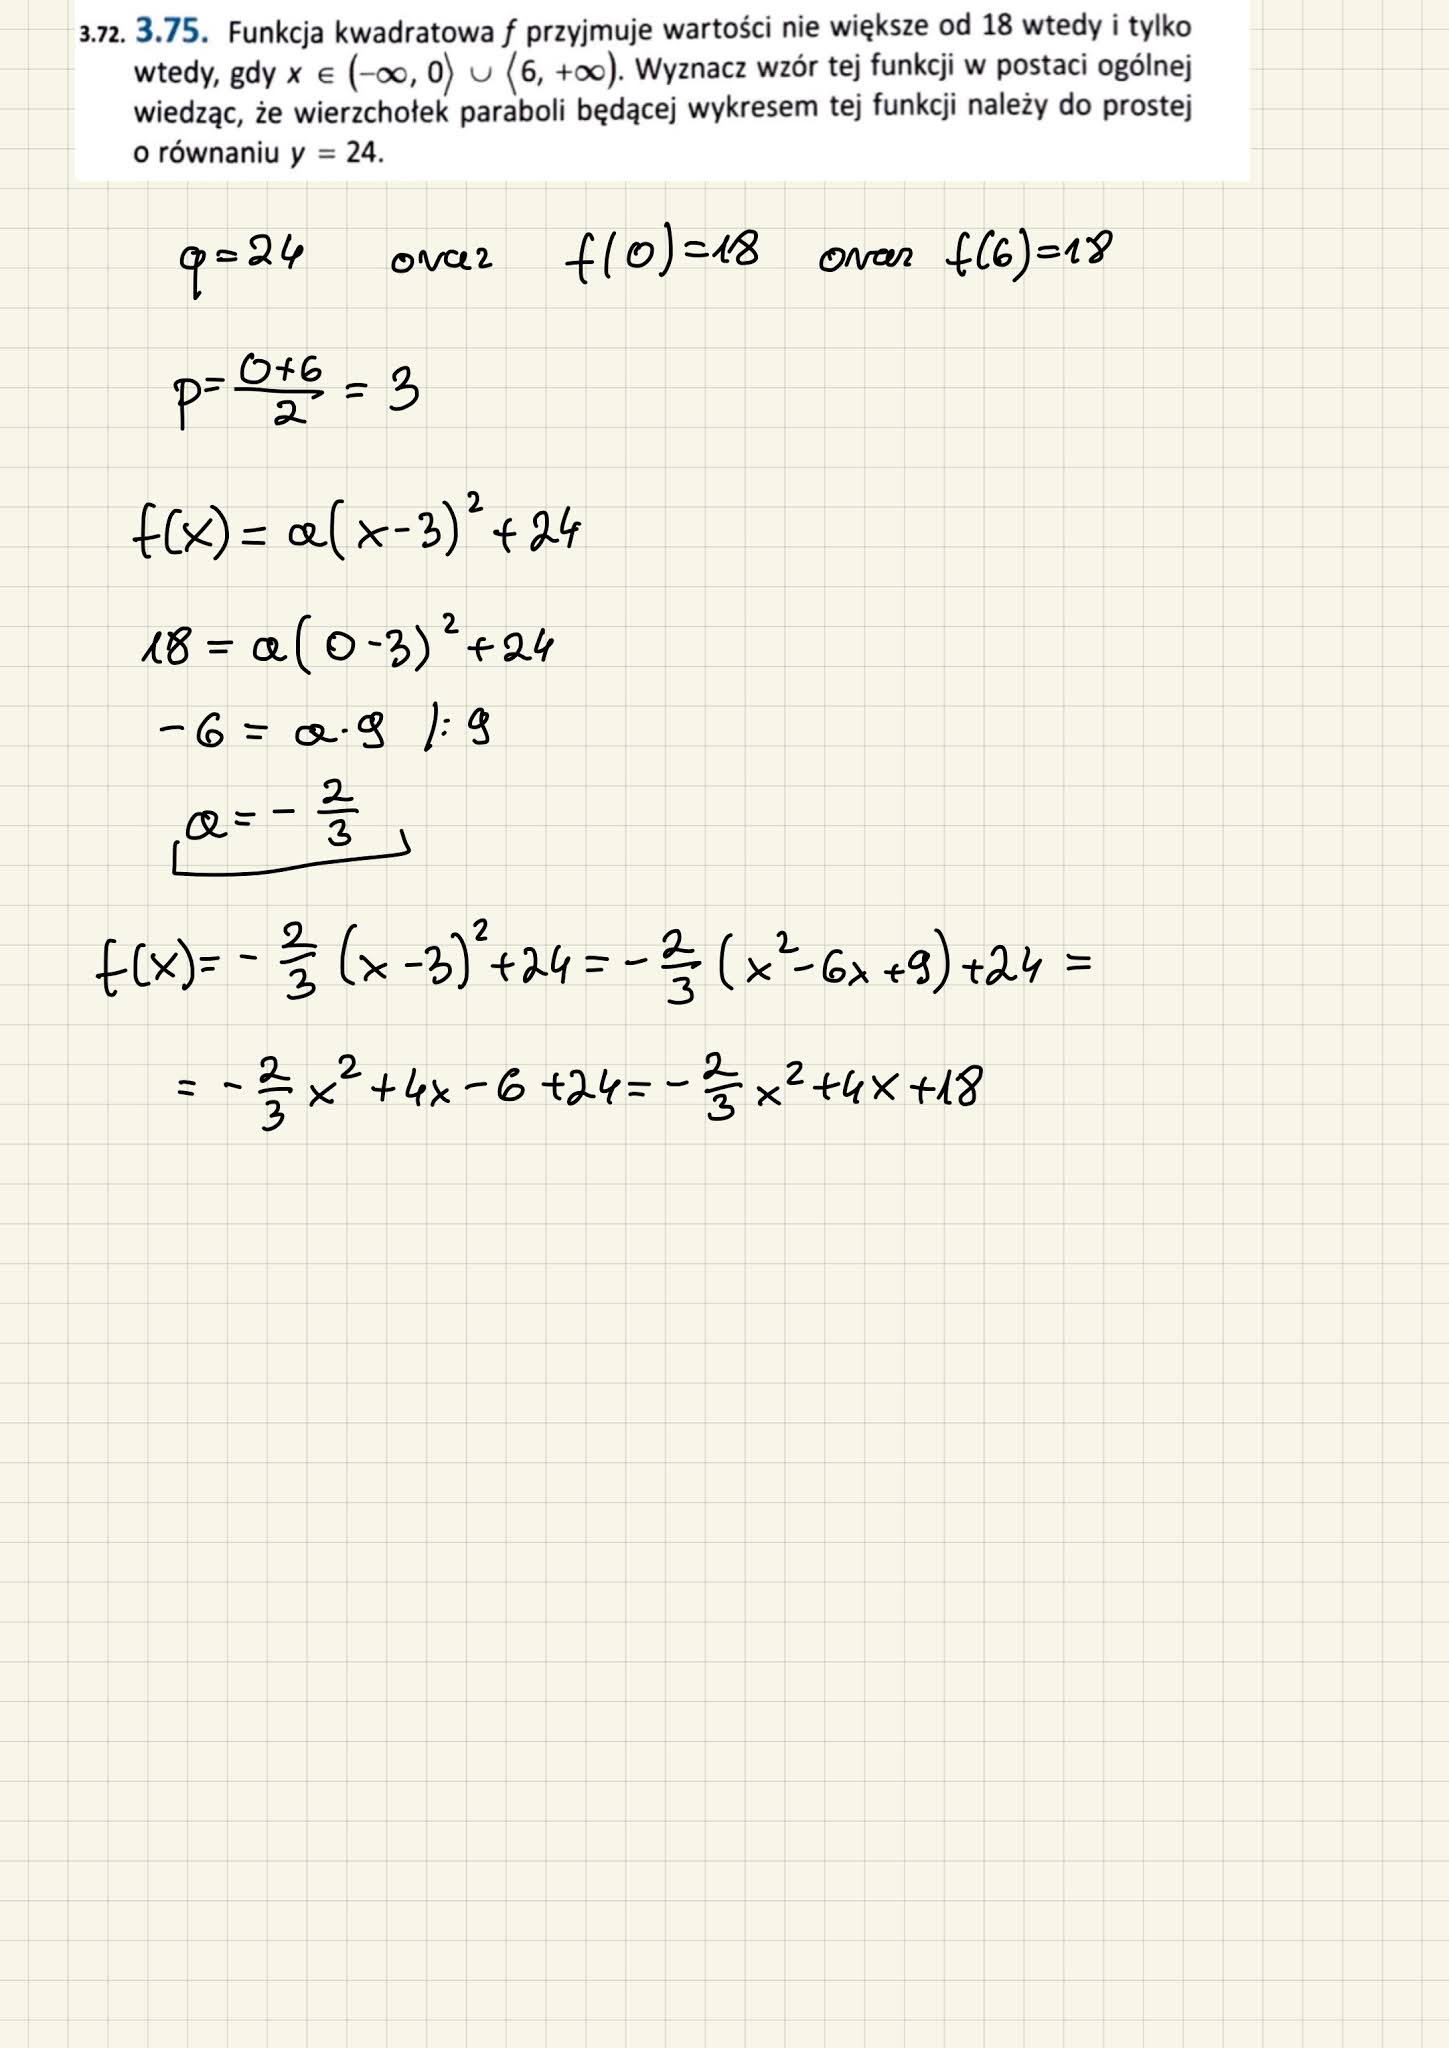 3.72. 3.75. Funkcja kwadratowa f przyjmuje wartości nie większe od 18 wtedy i tylko
wtedy, gdy x ∈ (−∞, 0⟩ ∪ ⟨6, +∞). Wyznacz wzór tej funkcji w postaci ogólnej
wiedząc, że wierzchołek paraboli będącej wykresem tej funkcji należy do prostej
o równaniu y = 24.
q=24 oraz f(0)=18 oraz f(6)=18
p= (0+6)/2 = 3
f(x) = a(x-3)² + 24
18 = a(0-3)² + 24
-6 = a·9 /: 9
a = - 2/3
f(x)= - 2/3 (x-3)² + 24 = - 2/3 (x² - 6x + 9) + 24 =
= - 2/3 x² + 4x - 6 + 24 = - 2/3 x² + 4x + 18